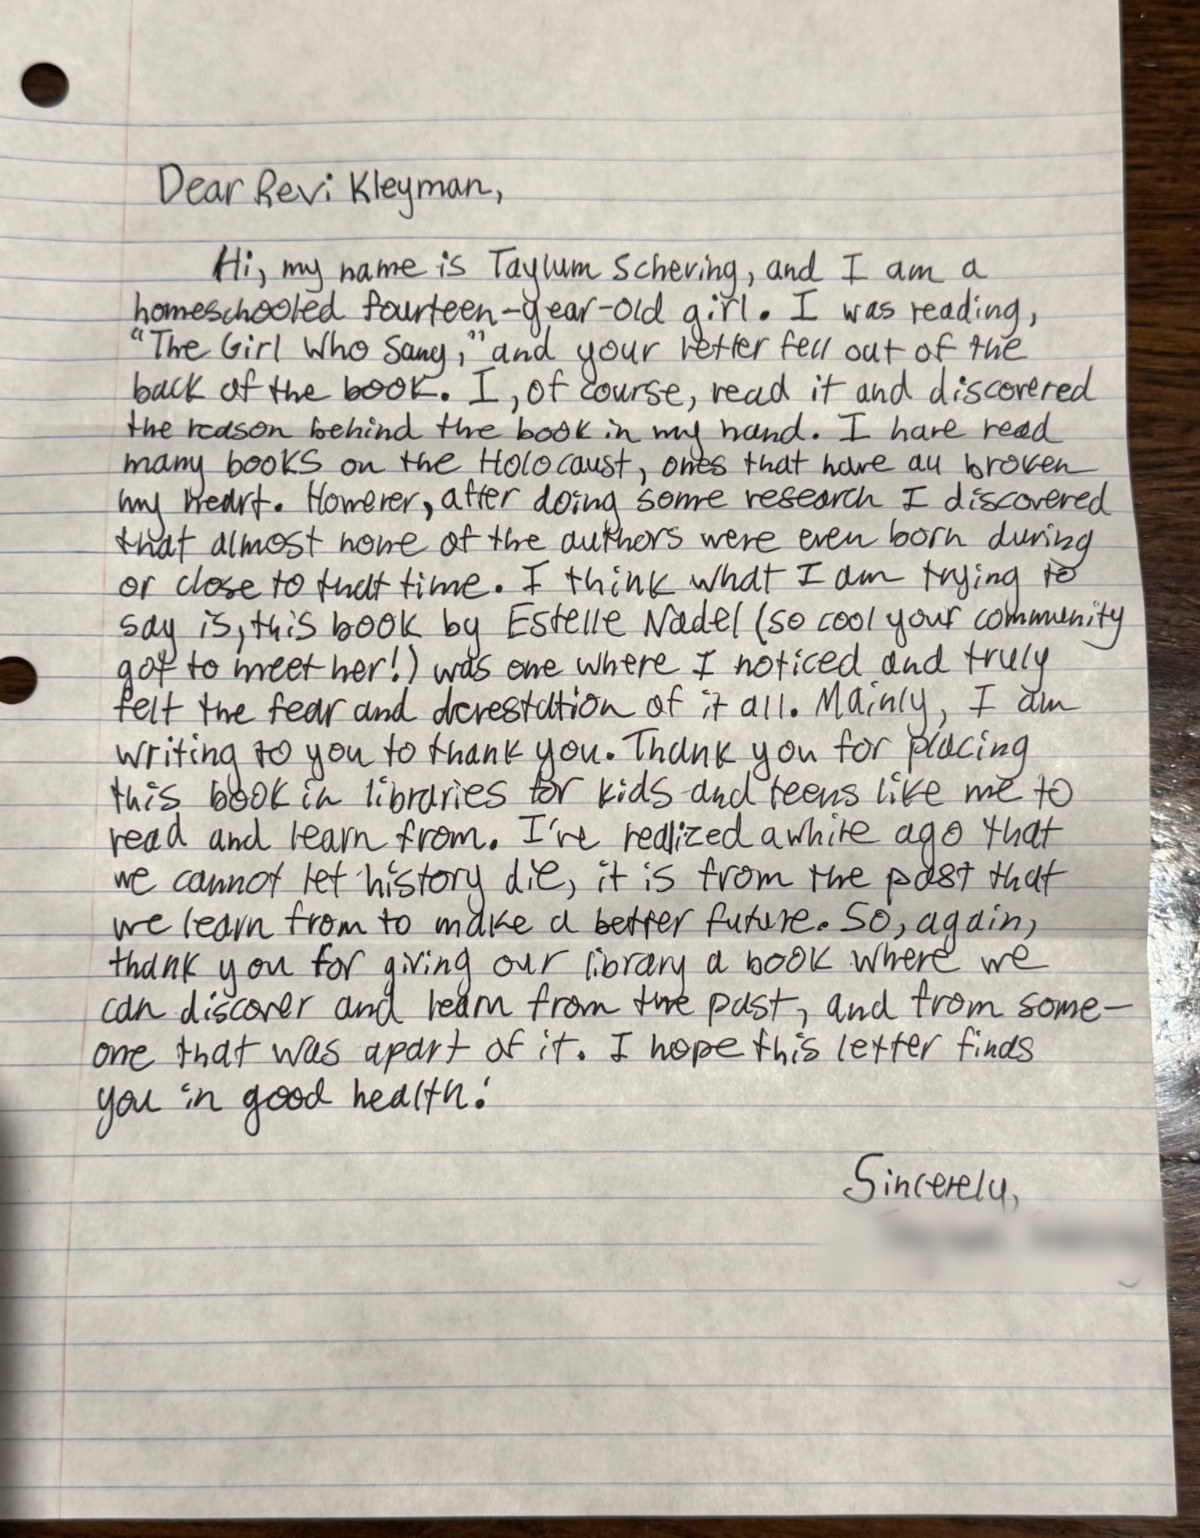 Dear Revi Kleyman,
Hi, my name is Taylum Schering, and I am a
homeschooled fourteen-year-old girl. I was reading,
"The Girl Who Sang," and your letter fell out of the
back of the book. I, of course, read it and discovered
the reason behind the book in my hand. I have read
many books on the Holocaust, ones that have all broken
my heart. However, after doing some research I discovered
that almost none of the authors were even born during
or close to that time. I think what I am trying to
say is, this book by Estelle Nadel (so cool your community
got to meet her!) was one where I noticed and truly
felt the fear and devestation of it all. Mainly, I am
writing to you to thank you. Thank you for placing
this book in libraries for kids and teens like me to
read and learn from. I've realized awhile ago that
we cannot let history die, it is from the past that
we learn from to make a better future. So, again,
thank you for giving our library a book where we
can discover and learn from the past, and from some-
one that was apart of it. I hope this letter finds
you in good health!
Sincerely,